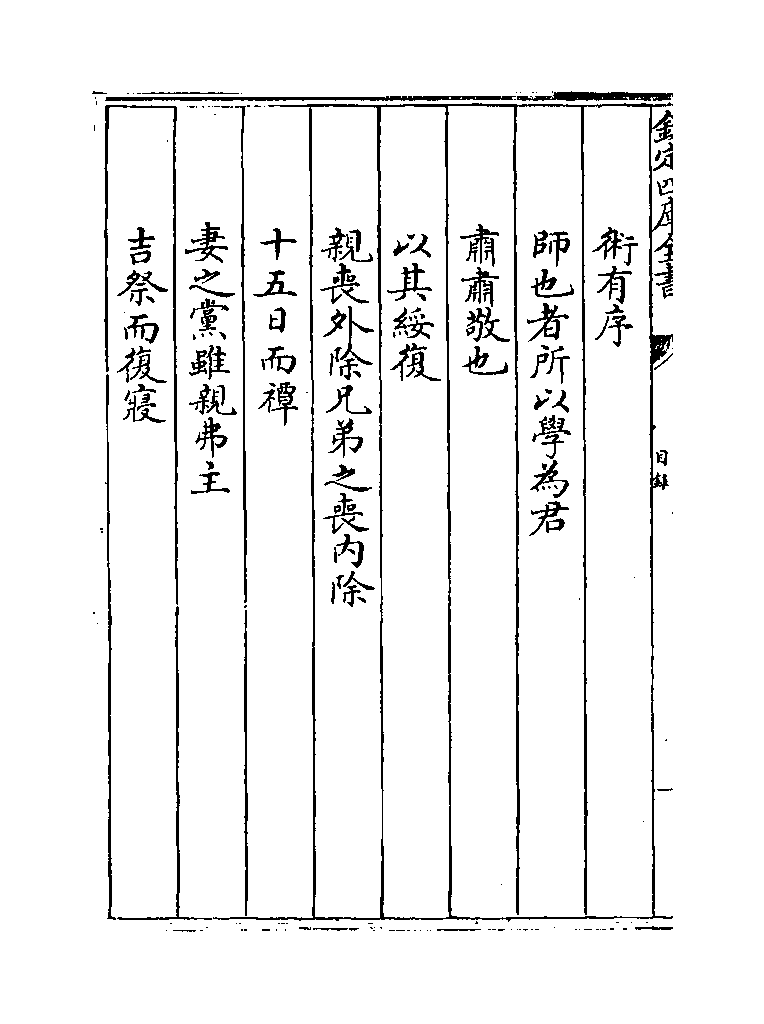 欽定四庫全書
目錄
術有序
師也者所以學為君
肅肅敬也
以其綏復
親喪外除兄弟之喪内除
十五日而禫
妻之黨雖親弗主
吉祭而復寢